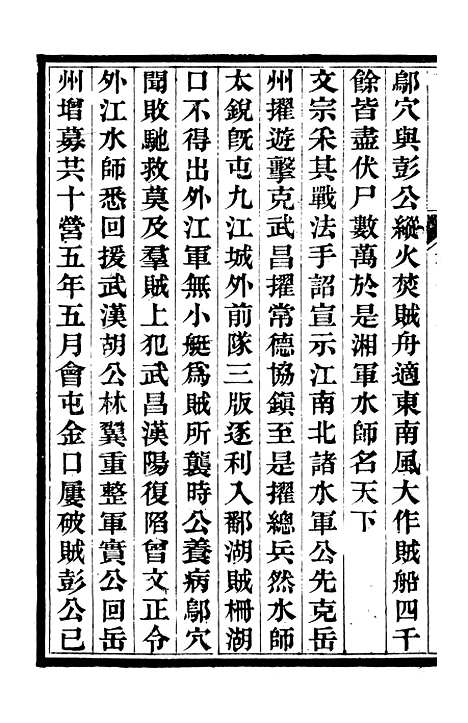 鄔穴與彭公縱火焚賊舟適東南風大作賊船四千
餘皆盡伏尸數萬於是湘軍水師名天下
文宗采其戰法手詔宣示江南北諸水軍公先克岳
州擢遊擊克武昌擢常德協鎮至是擢總兵然水師
太銳旣屯九江城外前隊三版逐利入鄱湖賊柵湖
口不得出外江軍無小艇爲賊所襲時公養病鄔穴
聞敗馳救莫及羣賊上犯武昌漢陽復陷曾文正令
外江水師悉回援武漢胡公林翼重整軍實公回岳
州增募共十營五年五月會屯金口屢破賊彭公已